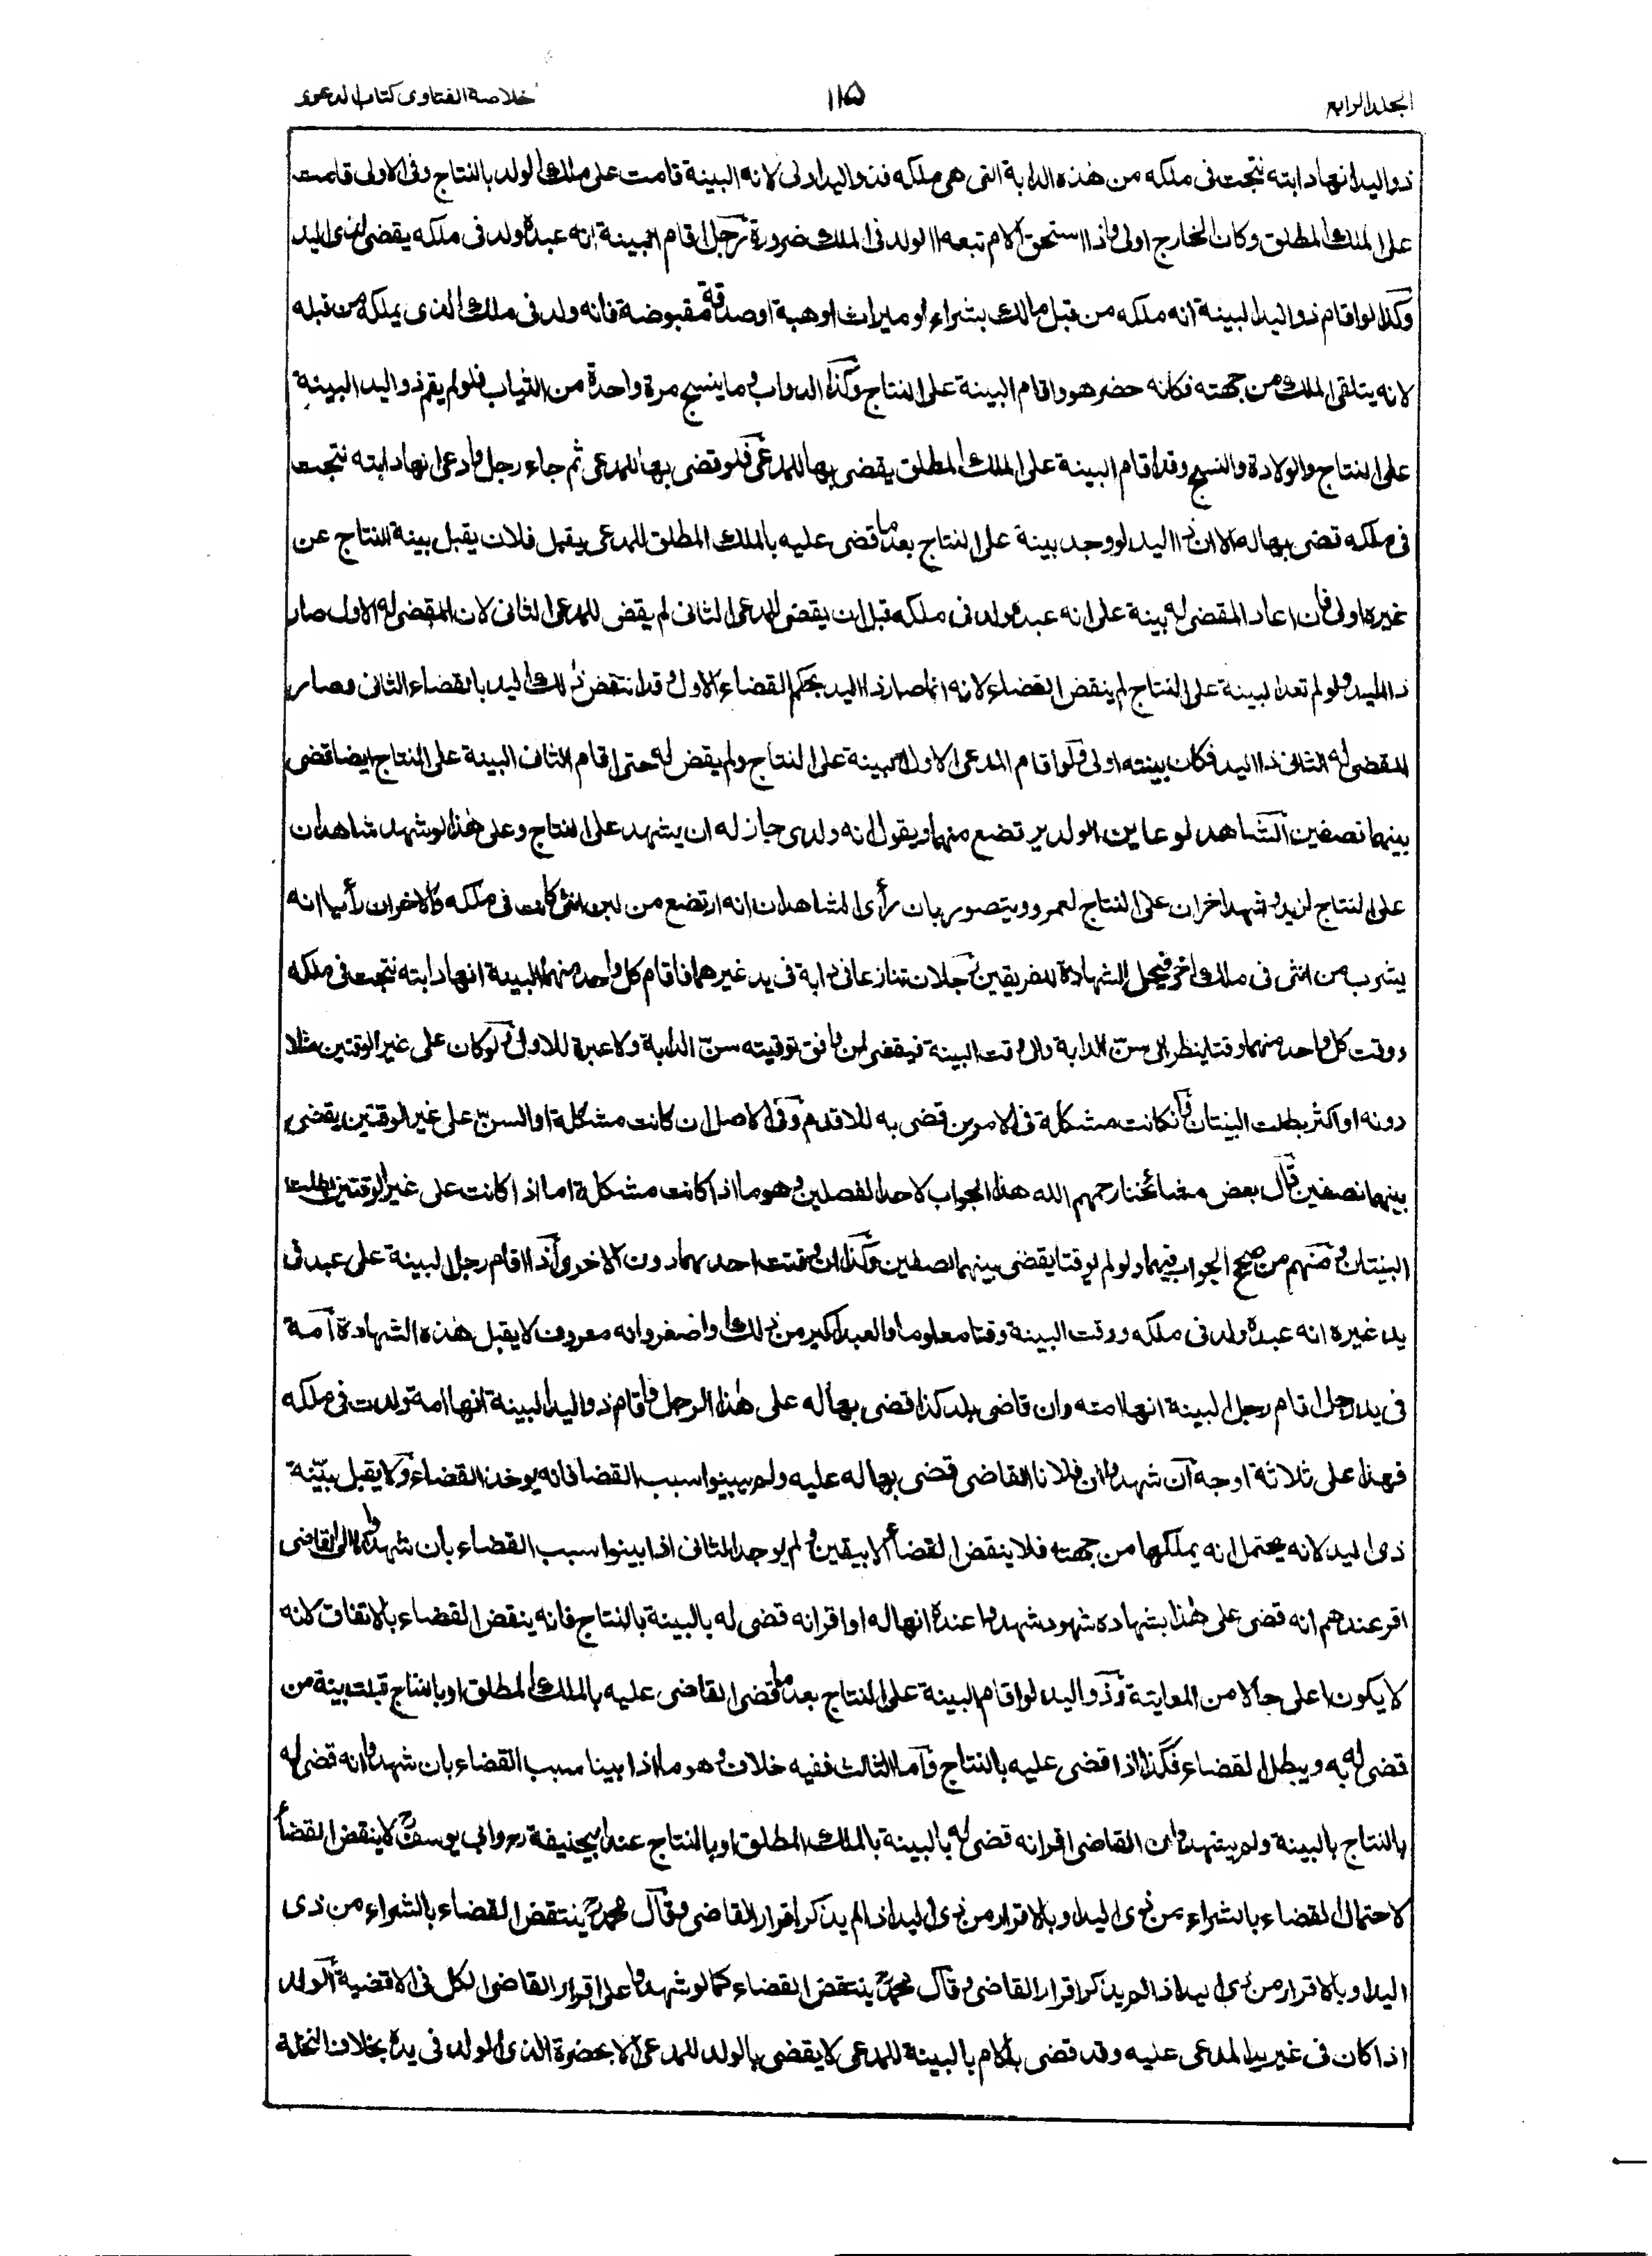 الجلد الرابع ١١٥ خلاصة الفتاوى كتاب الدعوى
ذو اليد انها دابته نتجت فى ملكه من هذه الدابة التى هى ملكه فذو اليد اولى لانه البينة قامت على ملك الولد بالنتاج وفى الاولى قامت
على الملك المطلق وكان الخارج اولى واذا استحق الام تبعه الولد فى الملك ضرورة رجل اقام البينة انه عبده ولد فى ملكه يقضى لذى اليد
وكذا لو اقام ذو اليد البينة انه ملكه من قبل مالك بشراء او ميراث او هبة او صدقة مقبوضة فانه ولد فى ملك الذى يملكه من قبله
لانه يتلقى الملك من جهته فكانه حضر هو واقام البينة على النتاج وكذا الدواب و ما ينسج مرة واحدة من الثياب فلو لم يقم ذو اليد البينة
على النتاج والولادة والنسج وقد اقام البينة على الملك المطلق يقضى بها للمدعى فلو قضى بها للمدعى ثم جاء رجل وادعى انها دابته نتجت
فى ملكه قضى بها له الا ان ذا اليد لو وجد بينة على النتاج بعد ما قضى عليه بالملك المطلق للمدعى يقبل فلان يقبل بينة النتاج عن
غيره اولى فان اعاد المقضى له بينة على انه عبده ولد فى ملكه قبل ان يقضى للمدعى الثانى لم يقض للمدعى الثانى لان المقضى له الاول صار
ذا اليد ولو لم تعد البينة على النتاج لم ينقض القضاء لانه انما صار ذا اليد بحكم القضاء الاول و قد انتقض ذلك اليد بالقضاء الثانى وصار
المقضى له الثانى ذا اليد فكان بينته اولى ولو اقام المدعى الاول البينة على النتاج ولم يقض له حتى اقام الثانى البينة على النتاج ايضا قضى
بينهما نصفين الشاهد لو عاين الولد يرتضع منها ويقول انه ولدى جاز له ان يشهد على النتاج وعلى هذا لو شهد شاهدان
على النتاج لزيد و شهد اخران على النتاج لعمرو ويتصور بان رأى الشاهدان انه ارتضع من لبن انثى كانت فى ملكه والاخران رأيا انه
يشرب من انثى فى ملك اخر فيحل الشهادة للفريقين رجلان تنازعا فى دابة فى يد غيرهما فاقام كل واحد منهما البينة انها دابته نتجت فى ملكه
ووقت كل واحد منهما وقتا ينظر الى سن الدابة والى وقت البينة فيقضى لمن وافق توقيته سن الدابة ولا عبرة للاول و لو كان على غير الوقتين مثلا
دونه او اكثر بطلت البينتان وان كانت مشكلة فى الامرين قضى به للاقدم وفى الاصل ان كانت مشكلة او السن على غير الوقتين يقضى
بينهما نصفين قال بعض مشائخنا رحمهم الله هذا الجواب لاحد الفصلين و هو ما اذا كانت مشكلة اما اذا كانت على غير الوقتين بطلت
البينتان و منهم من صحح الجواب فيهما ولو لم يوقتا يقضى بينهما نصفين وكذا ان وقتت احدهما دون الاخرى اذا اقام رجل البينة على عبد فى
يد غيره انه عبده ولد فى ملكه ووقت البينة وقتا معلوما والعبد اكبر من ذلك او اصغر وانه معروف لا يقبل هذه الشهادة أمة
فى يد رجل اقام رجل البينة انها امته وان قاضى بلد كذا قضى بها له على هذا الرجل واقام ذو اليد البينة انها امة ولدت فى ملكه
فهذا على ثلاثة اوجه ان شهدوا ان فلانا القاضى قضى بها له عليه ولم يبينوا سبب القضا فانه يوخذ القضاء ولا يقبل بينة
ذى اليد لانه يحتمل انه يملكها من جهته فلا ينقض القضأ الا بيقين و لم يوجد الثانى اذا بينوا سبب القضاء بان شهدوا ان القاضى
اقر عندهم انه قضى على هذا بشهاده شهود شهدوا عنده انها له او اقر انه قضى له بالبينة بالنتاج فانه ينقض القضاء بالاتفاق لانه
لا يكون اعلى حالا من المعاينة وذو اليد لو اقام البينة على النتاج بعد ما قضى القاضى عليه بالملك المطلق او بالنتاج قبلت بينة من
قضى له به ويبطل القضاء فكذا اذا قضى عليه بالنتاج واما الثالث ففيه خلاف و هو ما اذا بينا سبب القضاء بان شهدوا انه قضى له
بالنتاج بالبينة ولم يشهدوا ان القاضى اقر انه قضى له بالبينة بالملك المطلق او بالنتاج عند ابيحنيفة رح وابى يوسف رح لا ينقض القضأ
لاحتمال القضاء بالشراء من ذى اليد او بالاقرار من ذى اليد اذا لم يذكر اقرار القاضى وقال محمد رح ينتقض القضاء بالشراء من ذى
اليد او بالاقرار من ذى اليد اذا لم يذكر اقرار القاضى و قال محمد رح ينتقض القضاء كما لو شهدوا على اقرار القاضى الكل فى الاقضية الولد
اذا كان فى غير يد المدعى عليه وقد قضى بالام بالبينة للمدعى لا يقضى بالولد للمدعى الا بحضرة الذى الولد فى يده بخلاف النخلة